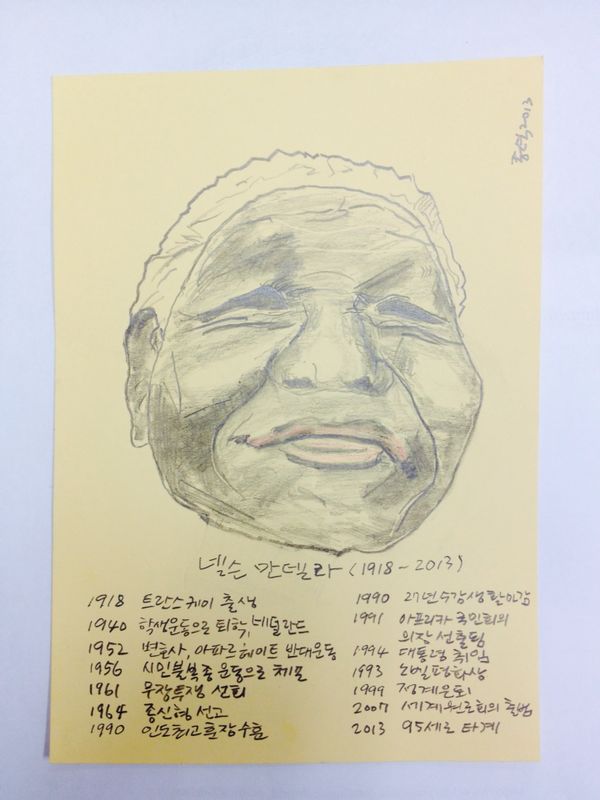 2013
넬슨 만델라 (1918-2013)
1918 트란스케이 출생
1940 학생운동으로 퇴학, 네덜란드
1952 변호사, 아파르헤이트 반대운동
1956 시민불복종 운동으로 체포
1961 무장투쟁 선회
1964 종신형 선고
1990 인도최고훈장수훈
1990 27년 수감생활마감
1991 아프리카 국민회의
의장 선출됨
1994 대통령 취임
1993 노벨평화상
1999 정계은퇴
2007 세계원로회의 출범
2013 95세로 타계